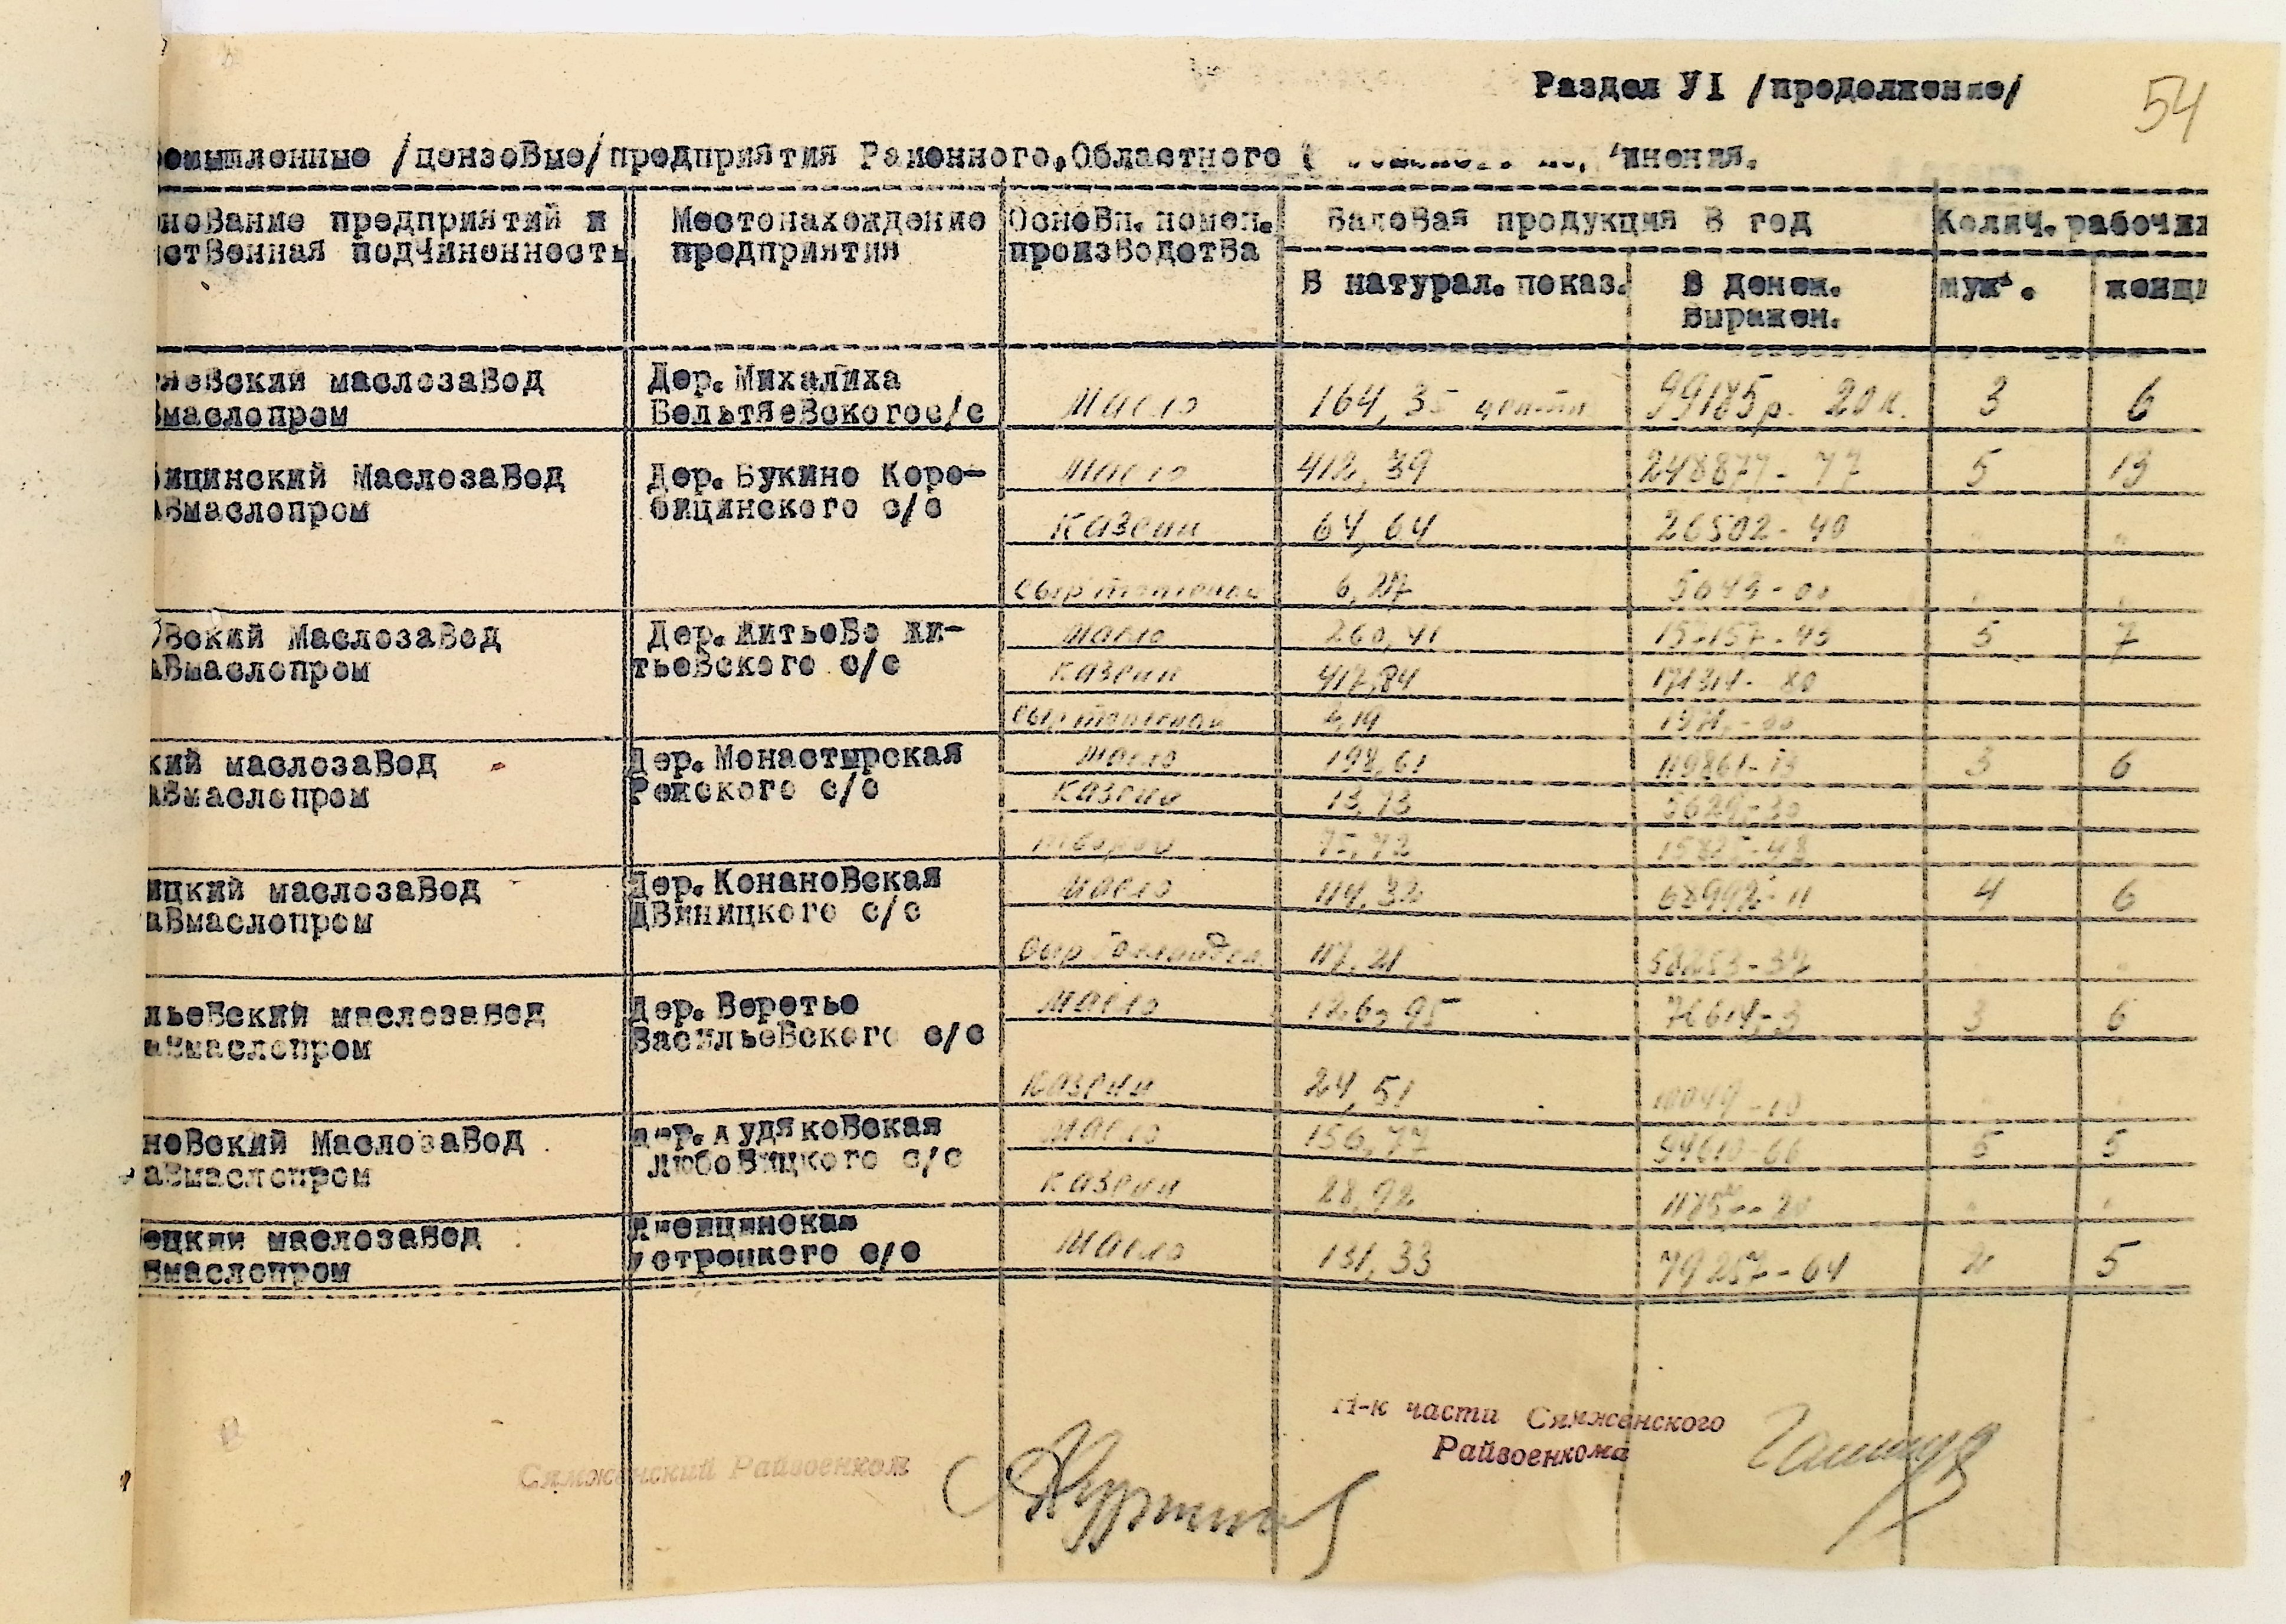 Раздел УI /продолжение/
54
омышленные /цензовые/предприятия Районного,Областного
нования предприятий и
ственная подчиненность
Местонахождение
предприятия
Основн. номен.
производства
Валовая продукция в год
Колич. рабочи
В натурал. показ.
В денеж.
выражен.
муж.
женщ
яевский маслозавод
вмаслопром
Дер. Михалиха
Бельтяевскогос/с
Масло
164,35
99185р. 20к.
3
6
ицинский Маслозавод
авмаслопром
Дер. Букино Коро-
бицинского с/с
Масло
412,39
248877-77
5
13
Казеин
64,64
26502-40
Сыр топленый
6,27
5643-00
вский Маслозавод
авмаслопром
Дер. Житьево Жи-
тьевского с/с
Масло
260,41
157157-43
5
7
Казеин
417,84
171314-80
Сыр топленый
2,19
1971-00
кий маслозавод
авмаслопром
Дер. Монастырская
Режского с/с
Масло
198,61
119861-13
3
6
Казеин
13,73
5629-30
творог
75,72
ицкий маслозавод
авмаслопром
Дер. Конановская
Двиницкого с/с
Масло
114,32
68992-11
4
6
Сыр Голландск.
117,21
58253-37
льевский маслозавод
авмаслопром
Дер. Веретье
Васильевского с/с
Масло
126,95
76614-3
3
6
Казеин
24,51
10049-10
новский Маслозавод
авмаслопром
дер. Аудяковская
Любовицкого с/с
Масло
156,77
94610-66
5
5
Казеин
28,92
ецкий маслозавод
вмаслопром
устрецкого с/с
Масло
131,33
79257-64
2
5
Сямженский Райвоенком
Н-к части Сямженского
Райвоенкома